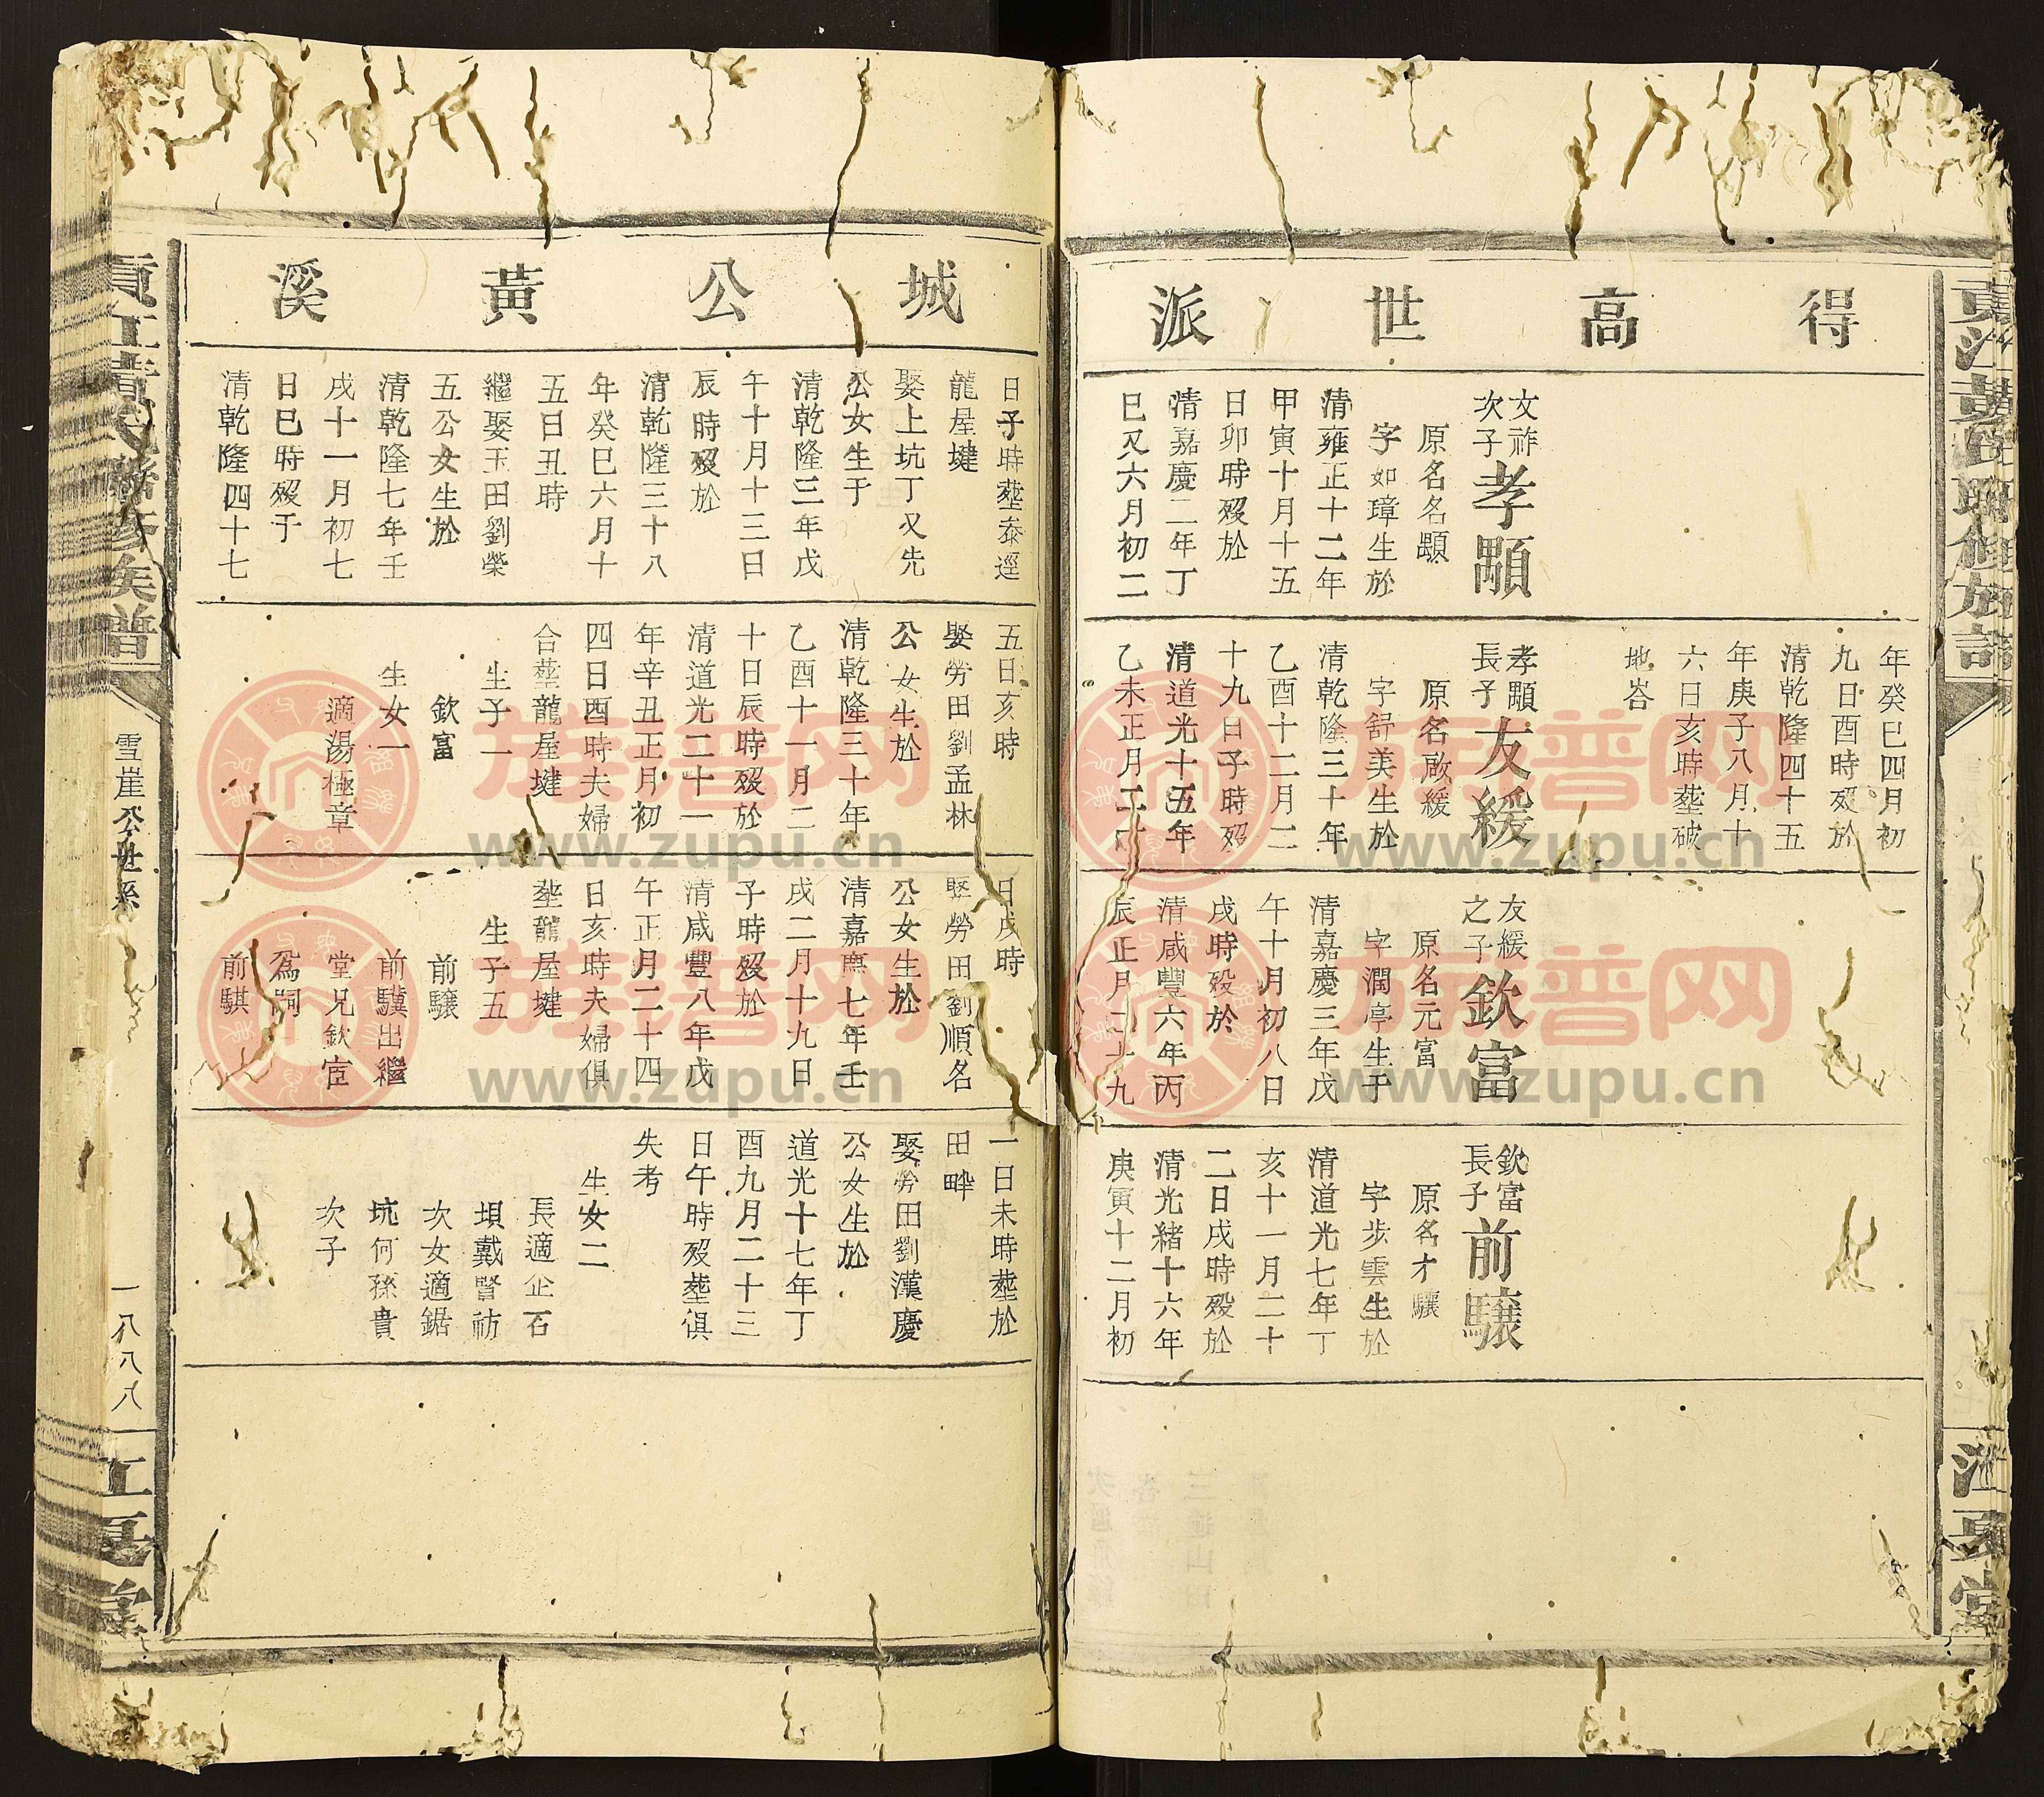 得高世派
文祚
次子
孝顒
原名名顒
字如璋生於
清雍正十二年
甲寅十月十五
日卯時殁於
清嘉慶二年丁
巳又六月初二
年癸巳四月初
九日酉時殁於
清乾隆四十五
年庚子八月十
六日亥時塟破
地峇
孝顒
長子
友緩
原名啟緩
字舒美生於
清乾隆三十年
乙酉十二月二
十九日子時殁
清道光十五年
乙未正月二
友緩
之子
欽富
原名元富
字潤亭生于
清嘉慶三年戊
午十月初八日
戌時殁於
清咸豐六年丙
辰正月二十九
欽富
長子
前驤
原名才驤
字步雲生於
清道光七年丁
亥十一月二十
二日戌時殁於
清光緒十六年
庚寅十二月初
城公黃溪
日子時塟泰逕
龍屋墶
娶上坑丁又先
公女生于
清乾隆三年戊
午十月十三日
辰時殁於
清乾隆三十八
年癸巳六月十
五日丑時
繼娶玉田劉榮
五公女生於
清乾隆七年壬
戌十一月初七
日巳時殁于
清乾隆四十七
五日亥時
娶勞田劉孟林
公女生於
清乾隆三十年
乙酉十一月二
十日辰時殁於
清道光二十一
年辛丑正月初
四日酉時夫婦
合塟龍屋墶
生子一
欽富
生女一
適湯極章
日戌時
娶勞田劉順名
公女生於
清嘉慶七年壬
戌二月十九日
子時殁於
清咸豐八年戊
午正月二十四
日亥時夫婦俱
塟龍屋墶
生子五
前驤
前驥出繼
堂兄欽宦
為嗣
前騏
一日未時塟於
田畔
娶勞田劉漢慶
公女生於
道光十七年丁
酉九月二十三
日午時殁塟俱
失考
生女二
長適企石
垻戴賢祊
次女適鋸
坑何孫貴
次子
雪崖公世系
一八八八